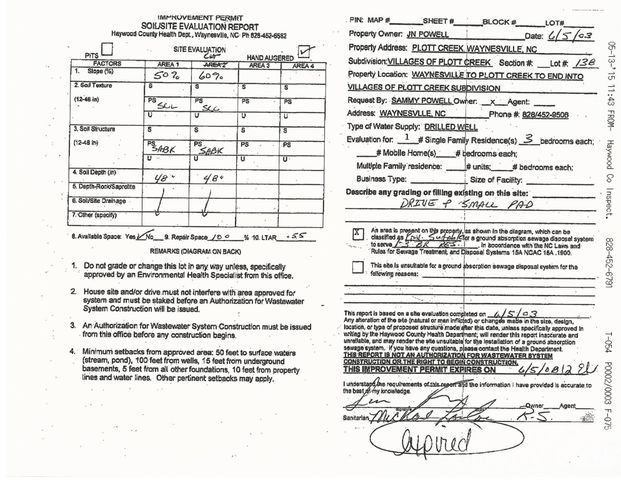 IMPROVEMENT PERMIT
SOIL/SITE EVALUATION REPORT
Haywood County Health Dept., Waynesville, NC Ph 828-452-6682
SITE EVALUATION
PITS HAND AUGERED
FACTORS AREA 1 AREA 2 AREA 3 AREA 4
1. Slope (%) 50% 60%
2. Soil Texture S S S S
(12-48 in) PS SCL PS SCL PS PS
U U U U
3. Soil Structure S S S S
(12-48 in) PS SABK PS SABK PS PS
U U U U
4. Soil Depth (in) 48" 48"
5. Depth-Rock/Saprolite
6. Soil/Site Drainage
7. Other (specify)
8. Available Space: Yes No 9. Repair Space 100 % 10. LTAR .55
REMARKS (DIAGRAM ON BACK)
1. Do not grade or change this lot in any way unless, specifically
approved by an Environmental Health Specialist from this office.
2. House site and/or drive must not interfere with area approved for
system and must be staked before an Authorization for Wastewater
System Construction will be issued.
3. An Authorization for Wastewater System Construction must be issued
from this office before any construction begins.
4. Minimum setbacks from approved area: 50 feet to surface waters
(stream, pond), 100 feet from wells, 15 feet from underground
basements, 5 feet from all other foundations, 10 feet from property
lines and water lines. Other pertinent setbacks may apply.
PIN: MAP # SHEET # BLOCK # LOT#
Property Owner: JN POWELL Date: 6/5/03
Property Address: PLOTT CREEK WAYNESVILLE, NC
Subdivision: VILLAGES OF PLOTT CREEK Section #: Lot #: 138
Property Location: WAYNESVILLE TO PLOTT CREEK TO END INTO
VILLAGES OF PLOTT CREEK SUBDIVISION
Request By: SAMMY POWELL Owner: x Agent:
Address: WAYNESVILLE, NC Phone #: 828/452-9508
Type of Water Supply: DRILLED WELL
Evaluation for: 1 # Single Family Residence(s) 3 bedrooms each;
# Mobile Home(s) # bedrooms each;
Multiple Family residence: # units; # bedrooms each;
Business Type: Size of Facility:
Describe any grading or filling existing on this site:
DRIVE & SMALL PAD
X An area is present on this property, as shown in the diagram, which can be
classified as Prov. Suitable for a ground absorption sewage disposal system
to serve 3 BR RES. in accordance with the NC Laws and
Rules for Sewage Treatment, and Disposal Systems 15A NCAC 18A .1900.
This site is unsuitable for a ground absorption sewage disposal system for the
following reasons:
This report is based on a site evaluation completed on 6/5/03
Any alteration of the site (natural or man inflicted) or changes made in the size, design,
location, or type of proposed structure made after this date, unless specifically approved in
writing by the Haywood County Health Department, will render this report inaccurate and
unreliable, and may render the site unsuitable for the installation of a ground absorption
sewage system. If you have any questions, please contact the Health Department.
THIS REPORT IS NOT AN AUTHORIZATION FOR WASTEWATER SYSTEM
CONSTRUCTION OR THE RIGHT TO BEGIN CONSTRUCTION.
THIS IMPROVEMENT PERMIT EXPIRES ON 6/5/08
I understand the requirements of this report and the information I have provided is accurate to
the best of my knowledge.
Owner Agent
Sanitarian Michael R.S.
Expired
05-13-'15 11:43 FROM- Haywood Co Inspect. 828-452-6791 T-054 P0002/0003 F-075